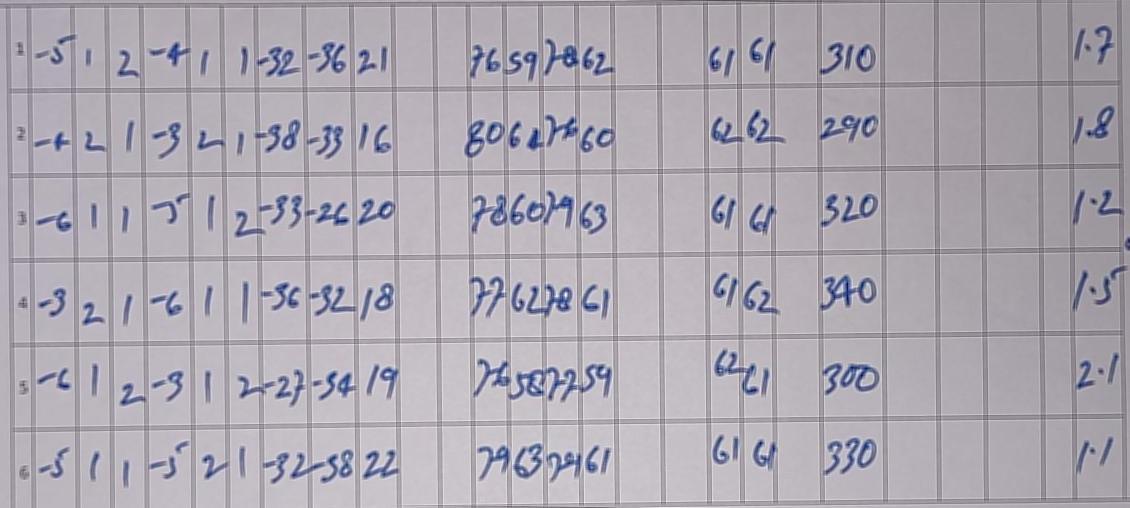 1 -5 1 2 -4 1 1 -32 -36 21 76 59 78 62 61 61 310 1.7
2 -4 2 1 -3 2 1 -38 -33 16 80 62 76 60 62 62 290 1.8
3 -6 1 1 -5 1 2 -33 -26 20 78 60 79 63 61 61 320 1.2
4 -3 2 1 -6 1 1 -36 -32 18 77 62 78 61 61 62 340 1.5
5 -6 1 2 -3 1 2 -27 -34 19 76 58 77 59 62 61 300 2.1
6 -5 1 1 -5 2 1 -32 -38 22 79 63 79 61 61 61 330 1.1